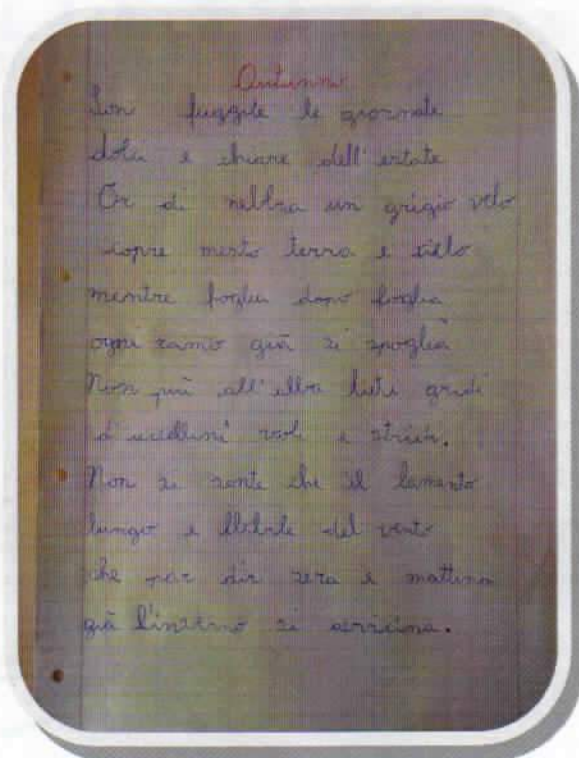 Autunno
Son fuggite le giornate
dolci e chiare dell'estate
Or di nebbia un grigio velo
copre mesto terra e cielo
mentre foglia dopo foglia
ogni ramo già si spoglia
Non più all'alba lieti gridi
d'uccellini voli e stridi.
Non si sente che il lamento
lungo e flebile del vento
che par dir sera e mattina
già l'inverno si avvicina.